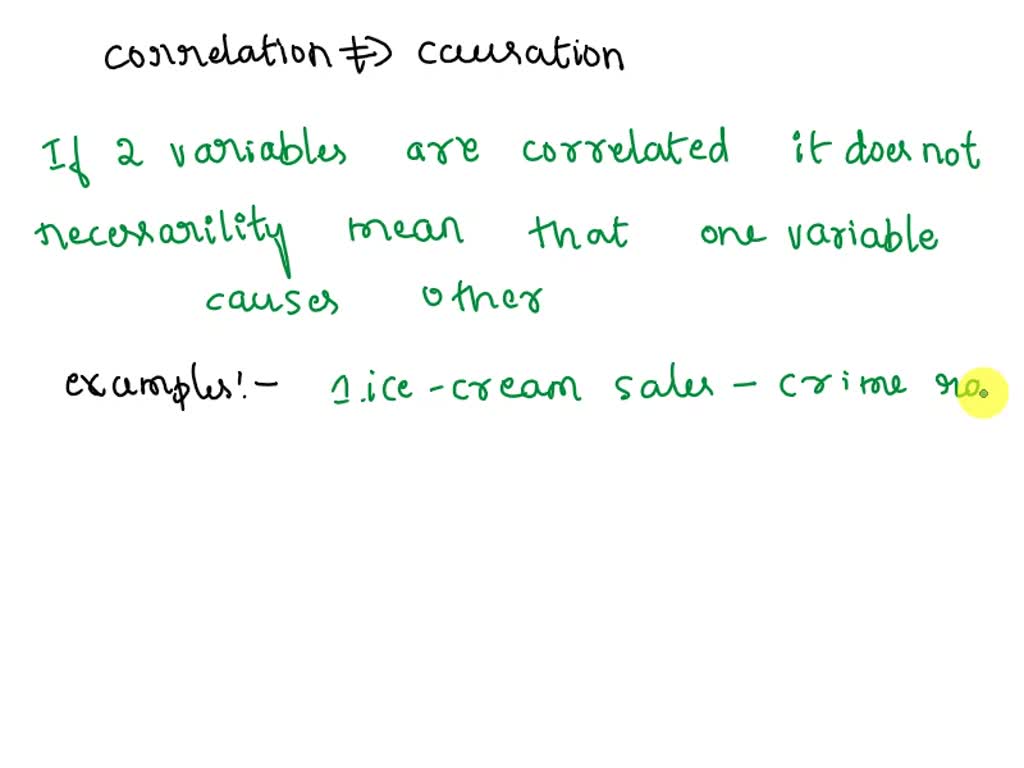 correlation ⇏ causation
If 2 variables are correlated it does not
necessarility mean that one variable
causes other
examples:- 1.ice-cream sales - crime ra